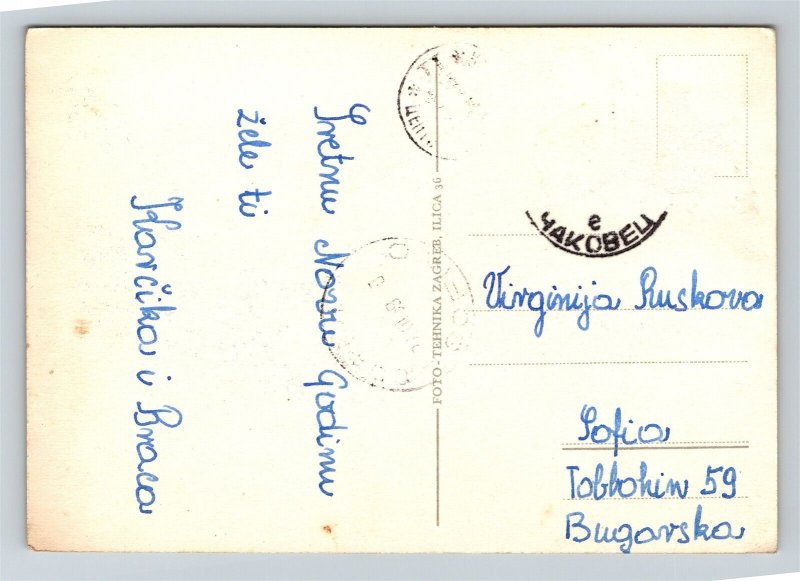 Sretnu Novu Godinu
žele ti
Marčika i Braca
FOTO - TEHNIKA ZAGREB, ILICA 36
е
ЧАКОВЕЦ
Virginija Ruskova
Sofia
Tolbohin 59
Bugarska